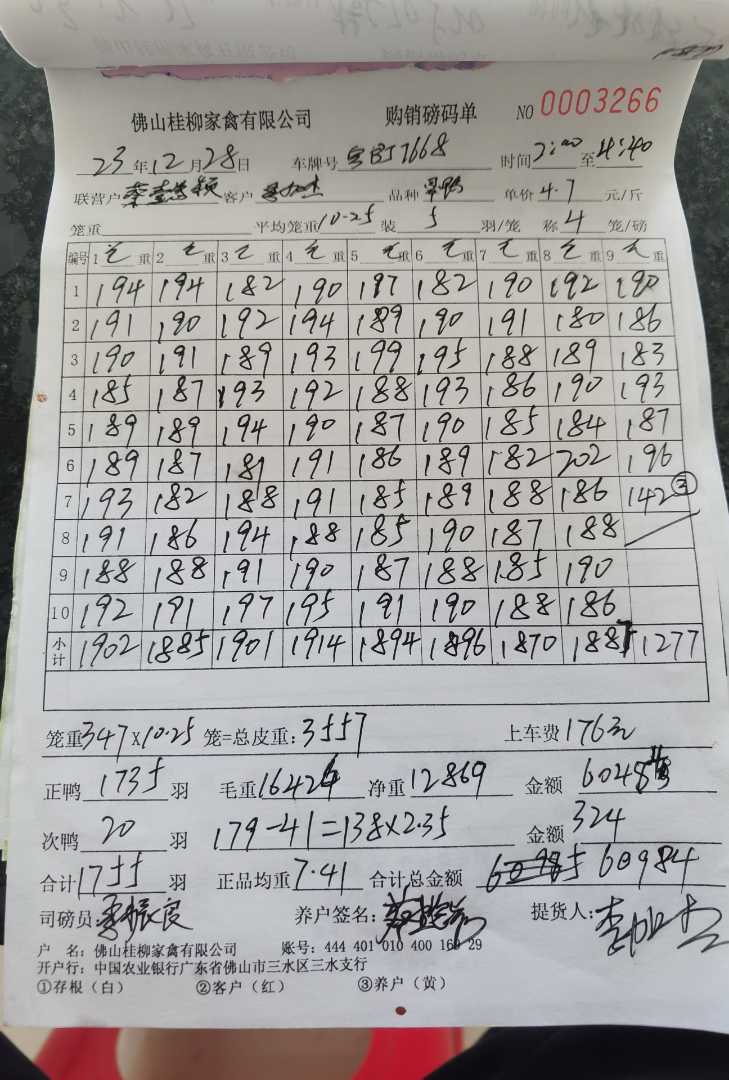 佛山桂柳家禽有限公司 购销磅码单 NO 0003266
23年12月28日 车牌号 7668 时间2:00至4:40
联营户 客户 品种 单价4.7元/斤
笼重 平均笼重10.25装5羽/笼 称4笼/磅
编号 1毛重 2毛重 3毛重 4毛重 5毛重 6毛重 7毛重 8毛重 9毛重
1 194 194 182 190 187 182 190 192 190
2 191 190 192 194 189 190 191 180 186
3 190 191 189 193 199 195 188 189 183
4 185 187 193 192 188 193 186 190 193
5 189 189 194 190 187 190 185 184 187
6 189 187 181 191 186 189 182 202 196
7 193 182 188 191 185 189 188 186 142③
8 191 186 194 188 185 190 187 188
9 188 188 191 190 187 188 185 190
10 192 191 197 195 191 190 188 186
小计 1902 1885 1901 1914 1894 1896 1870 1887 1277
笼重347×10.25笼=总皮重:3557 上车费176元
正鸭1735羽 毛重16426 净重12869 金额
次鸭20羽 179-41=138×2.35 金额324
合计1755羽 正品均重7.41 合计总金额 60984
司磅员: 养户签名: 提货人:
户 名:佛山桂柳家禽有限公司 账号:444 401 010 400 160 29
开户行:中国农业银行广东省佛山市三水区三水支行
①存根(白) ②客户(红) ③养户(黄)